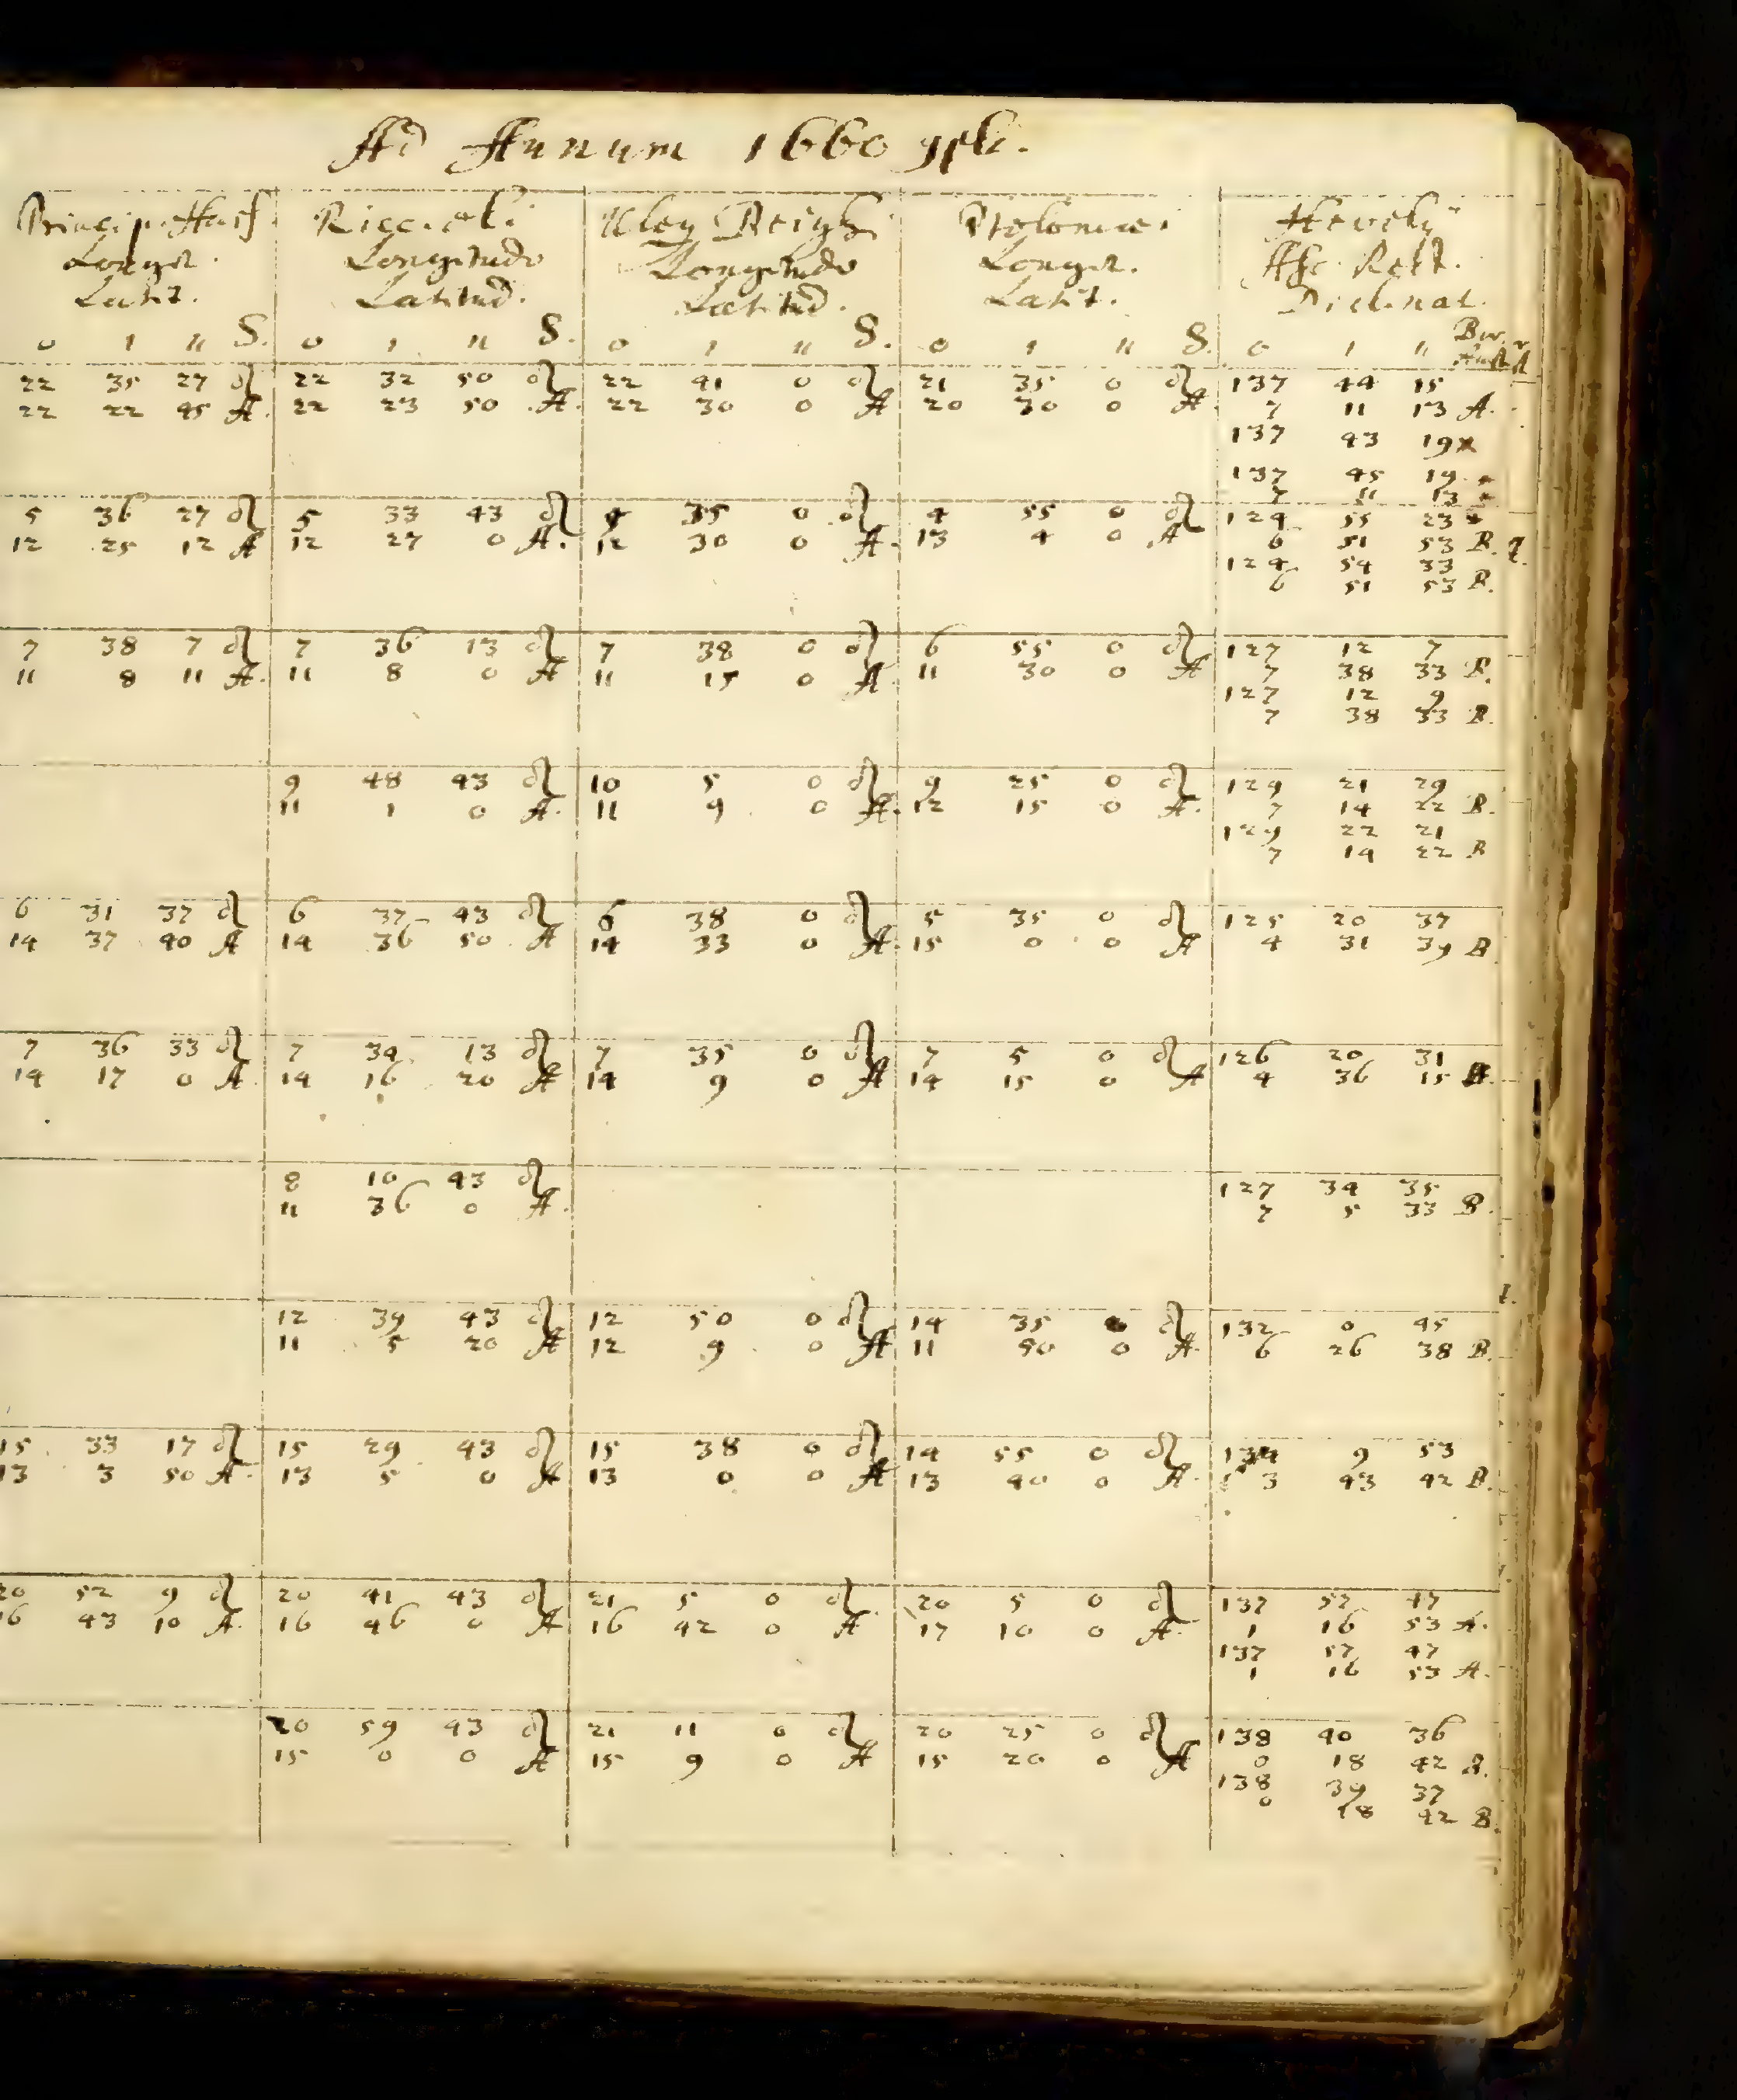 Ad Annum 1660
Princip. Hass. Riccioli Uleg Beigh Ptolomæi Hevelij
Longit. Longitudo Longitudo Longit. Asc. Rect.
Latit. Latitud. Latitud. Latit. Declinat.
0 ' " S. 0 ' " S. 0 ' " S. 0 ' " S. 0 ' " Bor.
22 35 27 ♌ 22 32 50 ♌ 22 41 0 ♌ 21 35 0 ♌ 137 44 15
22 22 45 A. 22 23 50 A. 22 30 0 A 20 30 0 A. 7 11 13 A.
137 43 19
137 45 19
7 11 13
5 36 27 ♌ 5 33 43 ♌ 4 35 0 ♌ 4 55 0 ♌ 124 55 23
12 25 12 A 12 27 0 A. 12 30 0 A. 13 4 0 A 6 51 53 B.
124 54 33
6 51 53 B.
7 38 7 ♌ 7 36 13 ♌ 7 38 0 ♌ 6 55 0 ♌ 127 12 7
11 8 11 A. 11 8 0 A 11 15 0 A 11 30 0 A 7 38 33 B.
127 12 9
7 38 33 B.
9 48 43 ♌ 10 5 0 ♌ 9 25 0 ♌ 129 21 29
11 1 0 A. 11 9 0 A. 12 15 0 A. 7 14 22 B.
129 22 21
7 14 22 B
6 31 37 ♌ 6 37 43 ♌ 6 38 0 ♌ 5 35 0 ♌ 125 20 37
14 37 40 A 14 36 50 A 14 33 0 A. 15 0 0 A 4 31 39 B.
7 36 33 ♌ 7 34 13 ♌ 7 35 0 ♌ 7 5 0 ♌ 126 20 31
14 17 0 A. 14 16 20 A 14 9 0 A 14 15 0 A 4 36 15
8 10 43 ♌ 127 34 35
11 36 0 A. 7 5 33 B.
12 39 43 ♌ 12 50 0 ♌ 14 35 ♌ 132 0 45
11 5 20 A 12 9 0 A 11 50 0 A. 6 26 38 B.
15 33 17 ♌ 15 29 43 ♌ 15 38 0 ♌ 14 55 0 ♌ 134 9 53
13 3 50 A. 13 5 0 A 13 0 0 A 13 40 0 A. 3 43 42 B.
20 52 9 ♌ 20 41 43 ♌ 21 5 0 ♌ 20 5 0 ♌ 137 57 47
16 43 10 A. 16 46 0 A 16 42 0 A 17 10 0 A. 1 16 53 A.
137 57 47
1 16 53 A.
20 59 43 ♌ 21 11 0 ♌ 20 25 0 ♌ 138 40 36
15 0 0 A 15 9 0 A 15 20 0 A 0 18 42 B.
138 39 37
0 18 42 B.